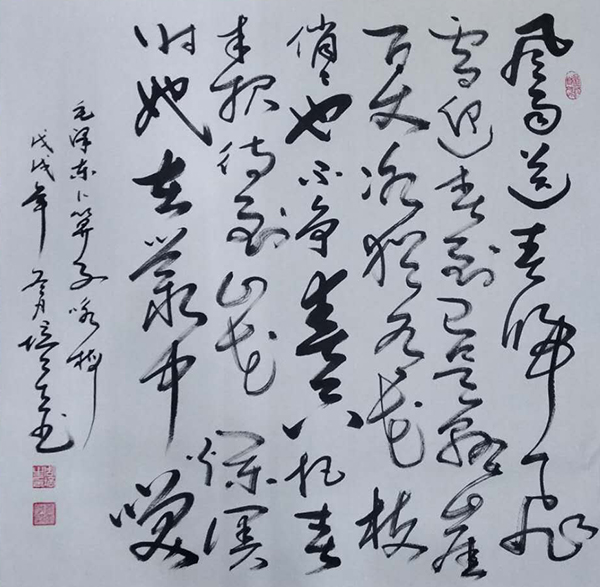 風雨送春归飛
雪迎春到已是懸崖
百丈冰犹有花枝
俏〻也不争春只把春
来报待到山花烂漫
时她在丛中笑
毛泽东卜算子咏梅
戊戌年冬月培书